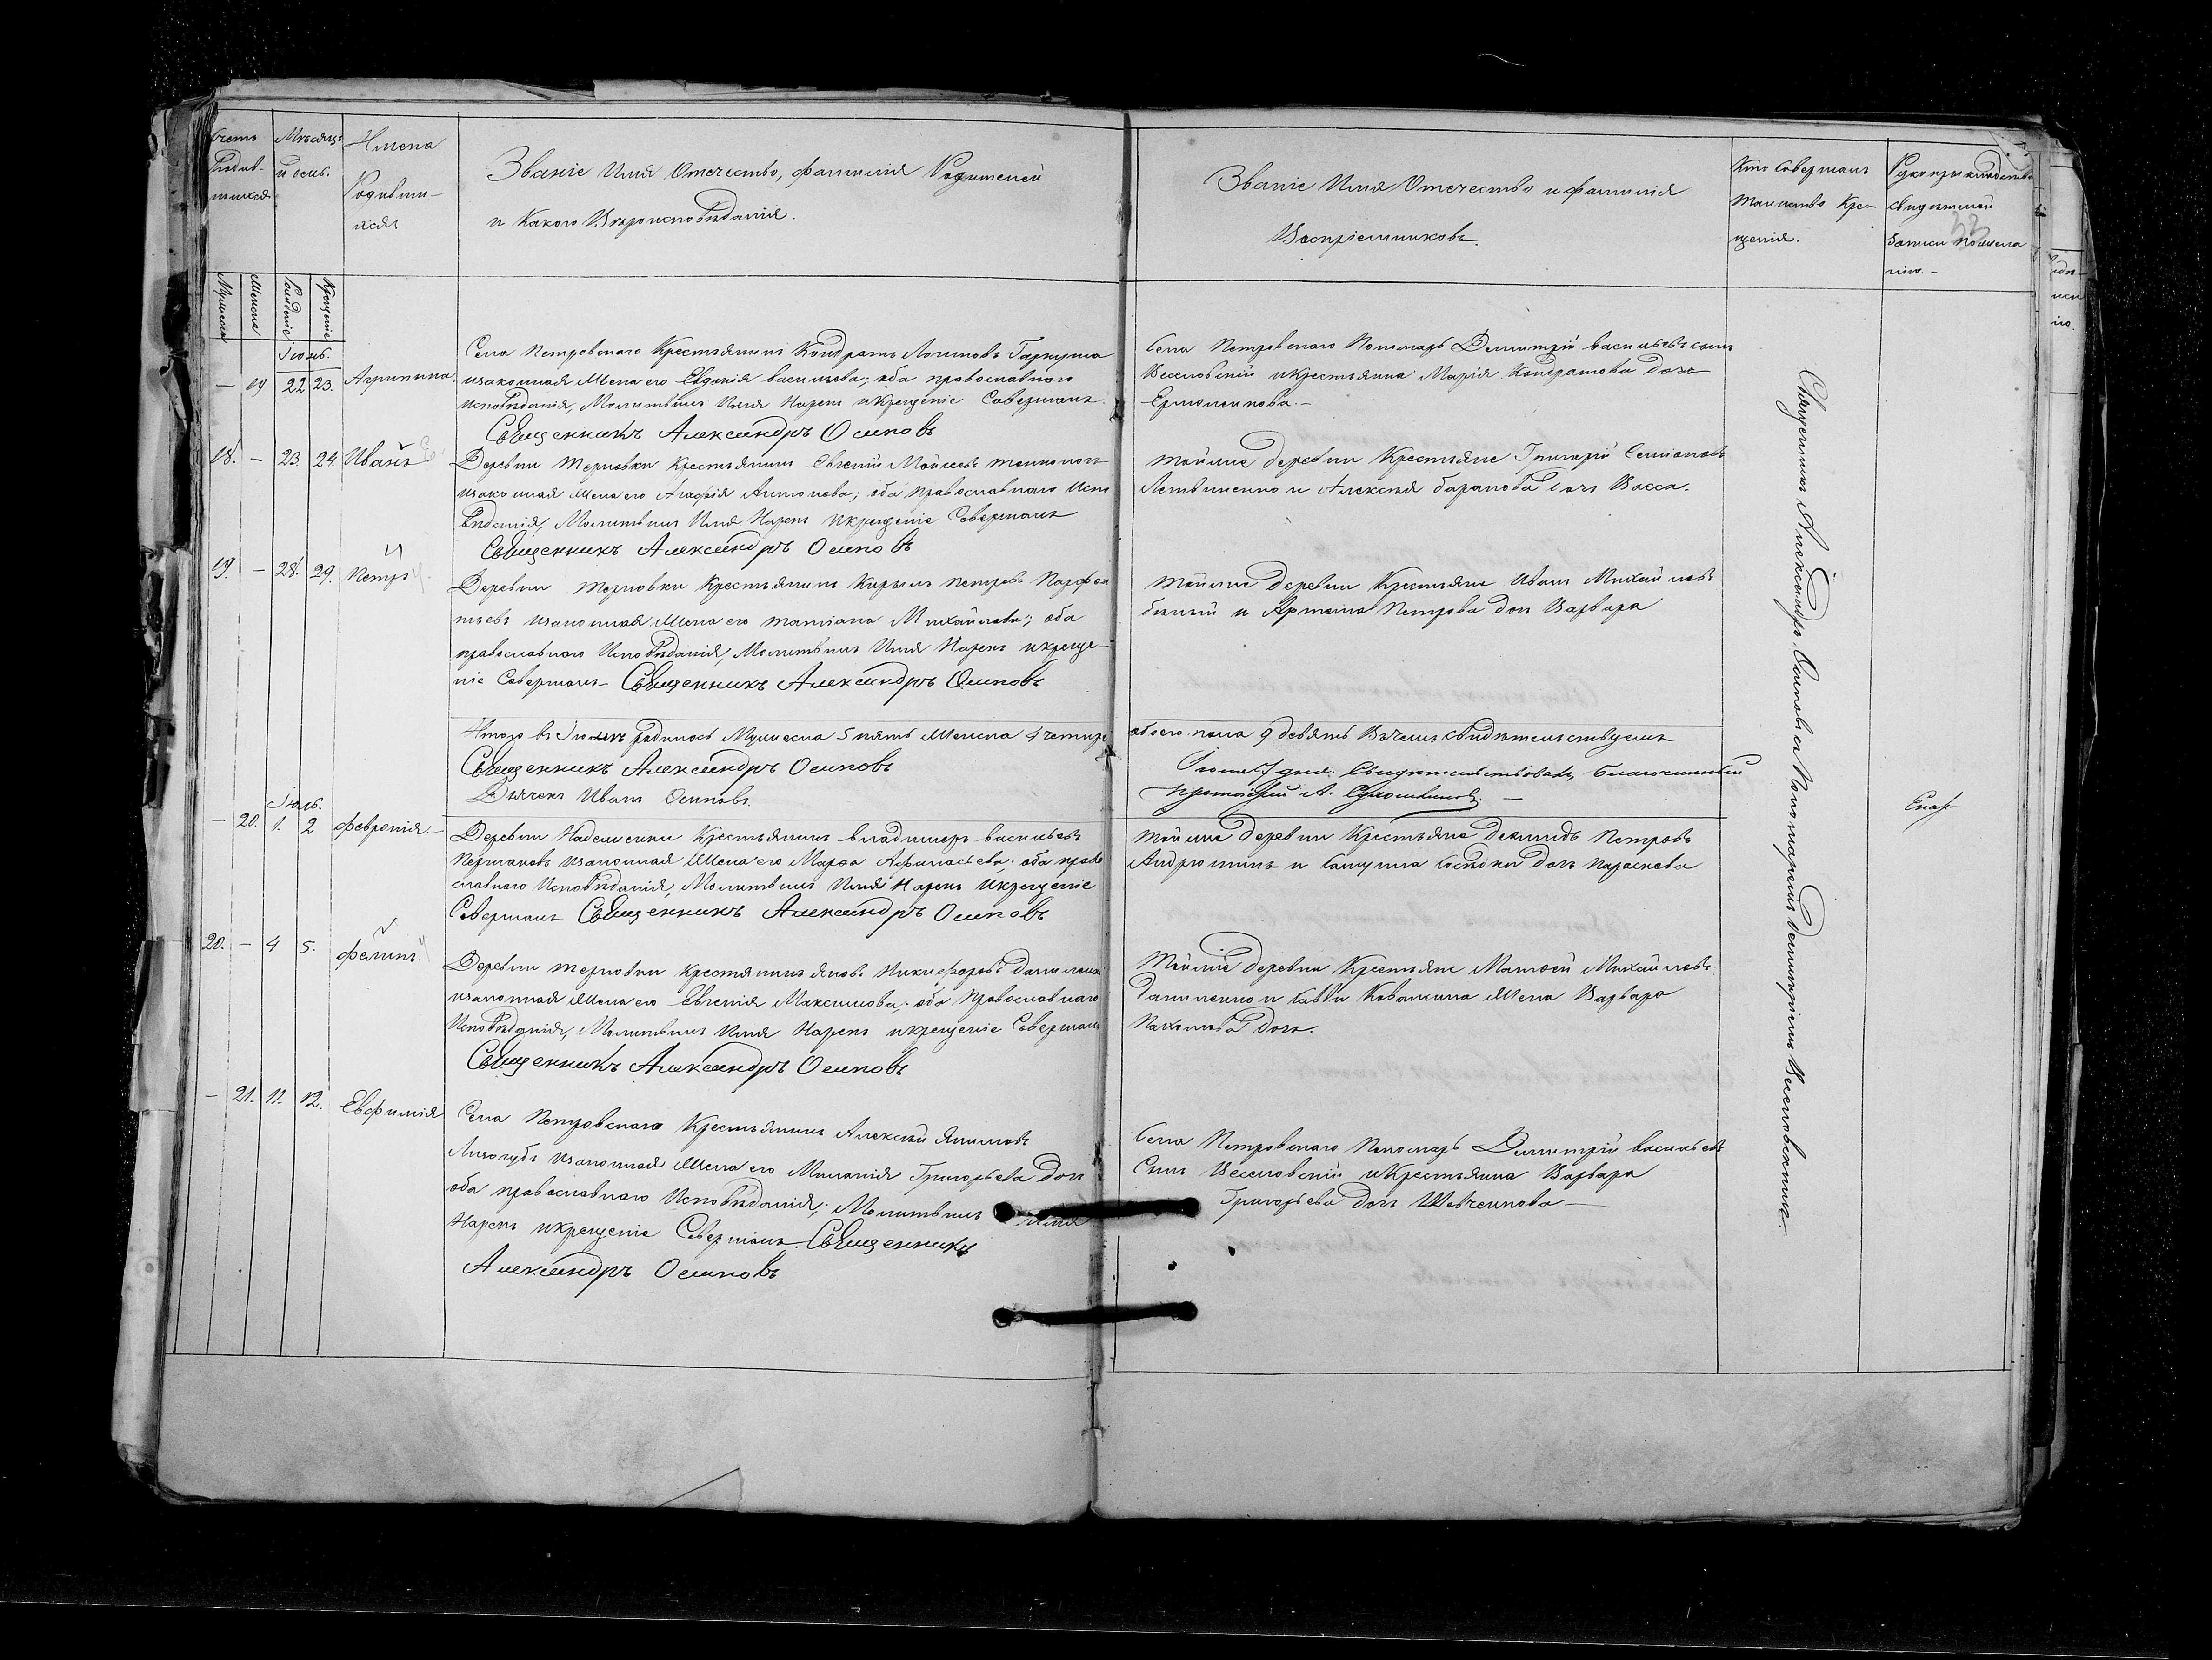 Счетъ Родив-шихся
Мѣсяцъ и день.
Имена Родивши-хся
Званіе Имя Отечество, фамилія Родителей
и Какого Вѣроисповѣданія.
Званіе Имя Отечество и фамилія
Воспріемниковъ.
Кто Совершалъ
таинство Кре-
щенія.
свидетелей
записи
Мужеска
Женска
Рожденіе
Крещеніе
Іюнь.
— 19 22 23. Агрипина.
Села Петровскаго Крестьянинъ Кондратъ Логиновъ Гаркуша
изаконная Жена его Евдокія васильева; оба православного
исповѣданія, Молитвилъ Имя Нарекъ иКрещеніе Совершалъ
Священникъ Александръ Осиповъ
Села Петровскаго Пономарь Димитрій васильевъ сынъ
Веселовскій иКрестьянка Марія Кондратова дочь
Ермоленкова.—
18. — 23. 24. Иванъ
Деревни Терновки Крестьянинъ Евгеній Мойсеевъ
изаконная Жена его Агафія Антонова; оба православнаго Испо
вѣданія, Молитвилъ Имя Нарекъ икрещеніе Совершалъ
Священникъ Александръ Осиповъ
тойжие деревни Крестьяне Григорій Семіоновъ
Литвиненко и Алексѣя баранова дочь Васса.
19. — 28. 29. Петръ
Деревни терновки Крестьянинъ Кирылъ петровъ Парфен
тьевъ изаконная Жена его татіана Михайлова; оба
православнаго Исповѣданія, Молитвилъ Имя Нарекъ икреще-
ніе Совершалъ— Священникъ Александръ Осиповъ
тойжие деревни Крестьяне Иванъ Михайловъ
и Артема Петрова доч Варвара
Итого въ Іюнѣ родилось Мужеска 5 пять Женска 4 четыре
обоего пола 9 девять Вчемъ свидѣтельствуемъ
Священникъ Александръ Осиповъ
Дьячекъ Иванъ Осиповъ.
Іюля 7 дня: Свидетельствовалъ, Благочинный
протоіерей А.
Іюль.
— 20. 1. 2 февронія.—
Деревни Надежиной Крестьянинъ владимиръ васильевъ
изаконная Жена его Марфа Афанасьева; оба право
славнаго Исповѣданія, Молитвилъ Имя Нарекъ икрещеніе
Совершалъ Священникъ Александръ Осиповъ
тойжие деревни Крестьяне демидъ Петровъ
Андрюшинъ и дочь параскева
20. — 4 5. фелипъ.
Деревни терновки крестянинъ яковъ Никифоровъ данилен
изаконная Жена его Евгенія Максимова; оба православнаго
Исповѣданія, Молитвилъ Имя Нарекъ икрещеніе Совершалъ
Священникъ Александръ Осиповъ
тойжие деревни Крестьяне Матвей Михайловъ
даниленко и Савви Жена Варвара
Пахомова дочь.
— 21. 11. 12. Евфимія
Села Петровскаго Крестьянинъ Алексѣй Якимовъ
Лизогубъ изаконная Жена его Миланія Григорьева доч
оба православнаго Исповѣданія; Молитвилъ Имя
Нарекъ икрещеніе Совершалъ. Священникъ
Александръ Осиповъ
Села Петровскаго Пономарь Димитрій васильевъ
Сынъ Веселовскій иКрестьянка Варвара
Григорьева дочь Шевченкова—
Священникъ Александръ Осиповъ съ Пономаремъ Димитріемъ Веселовскимъ